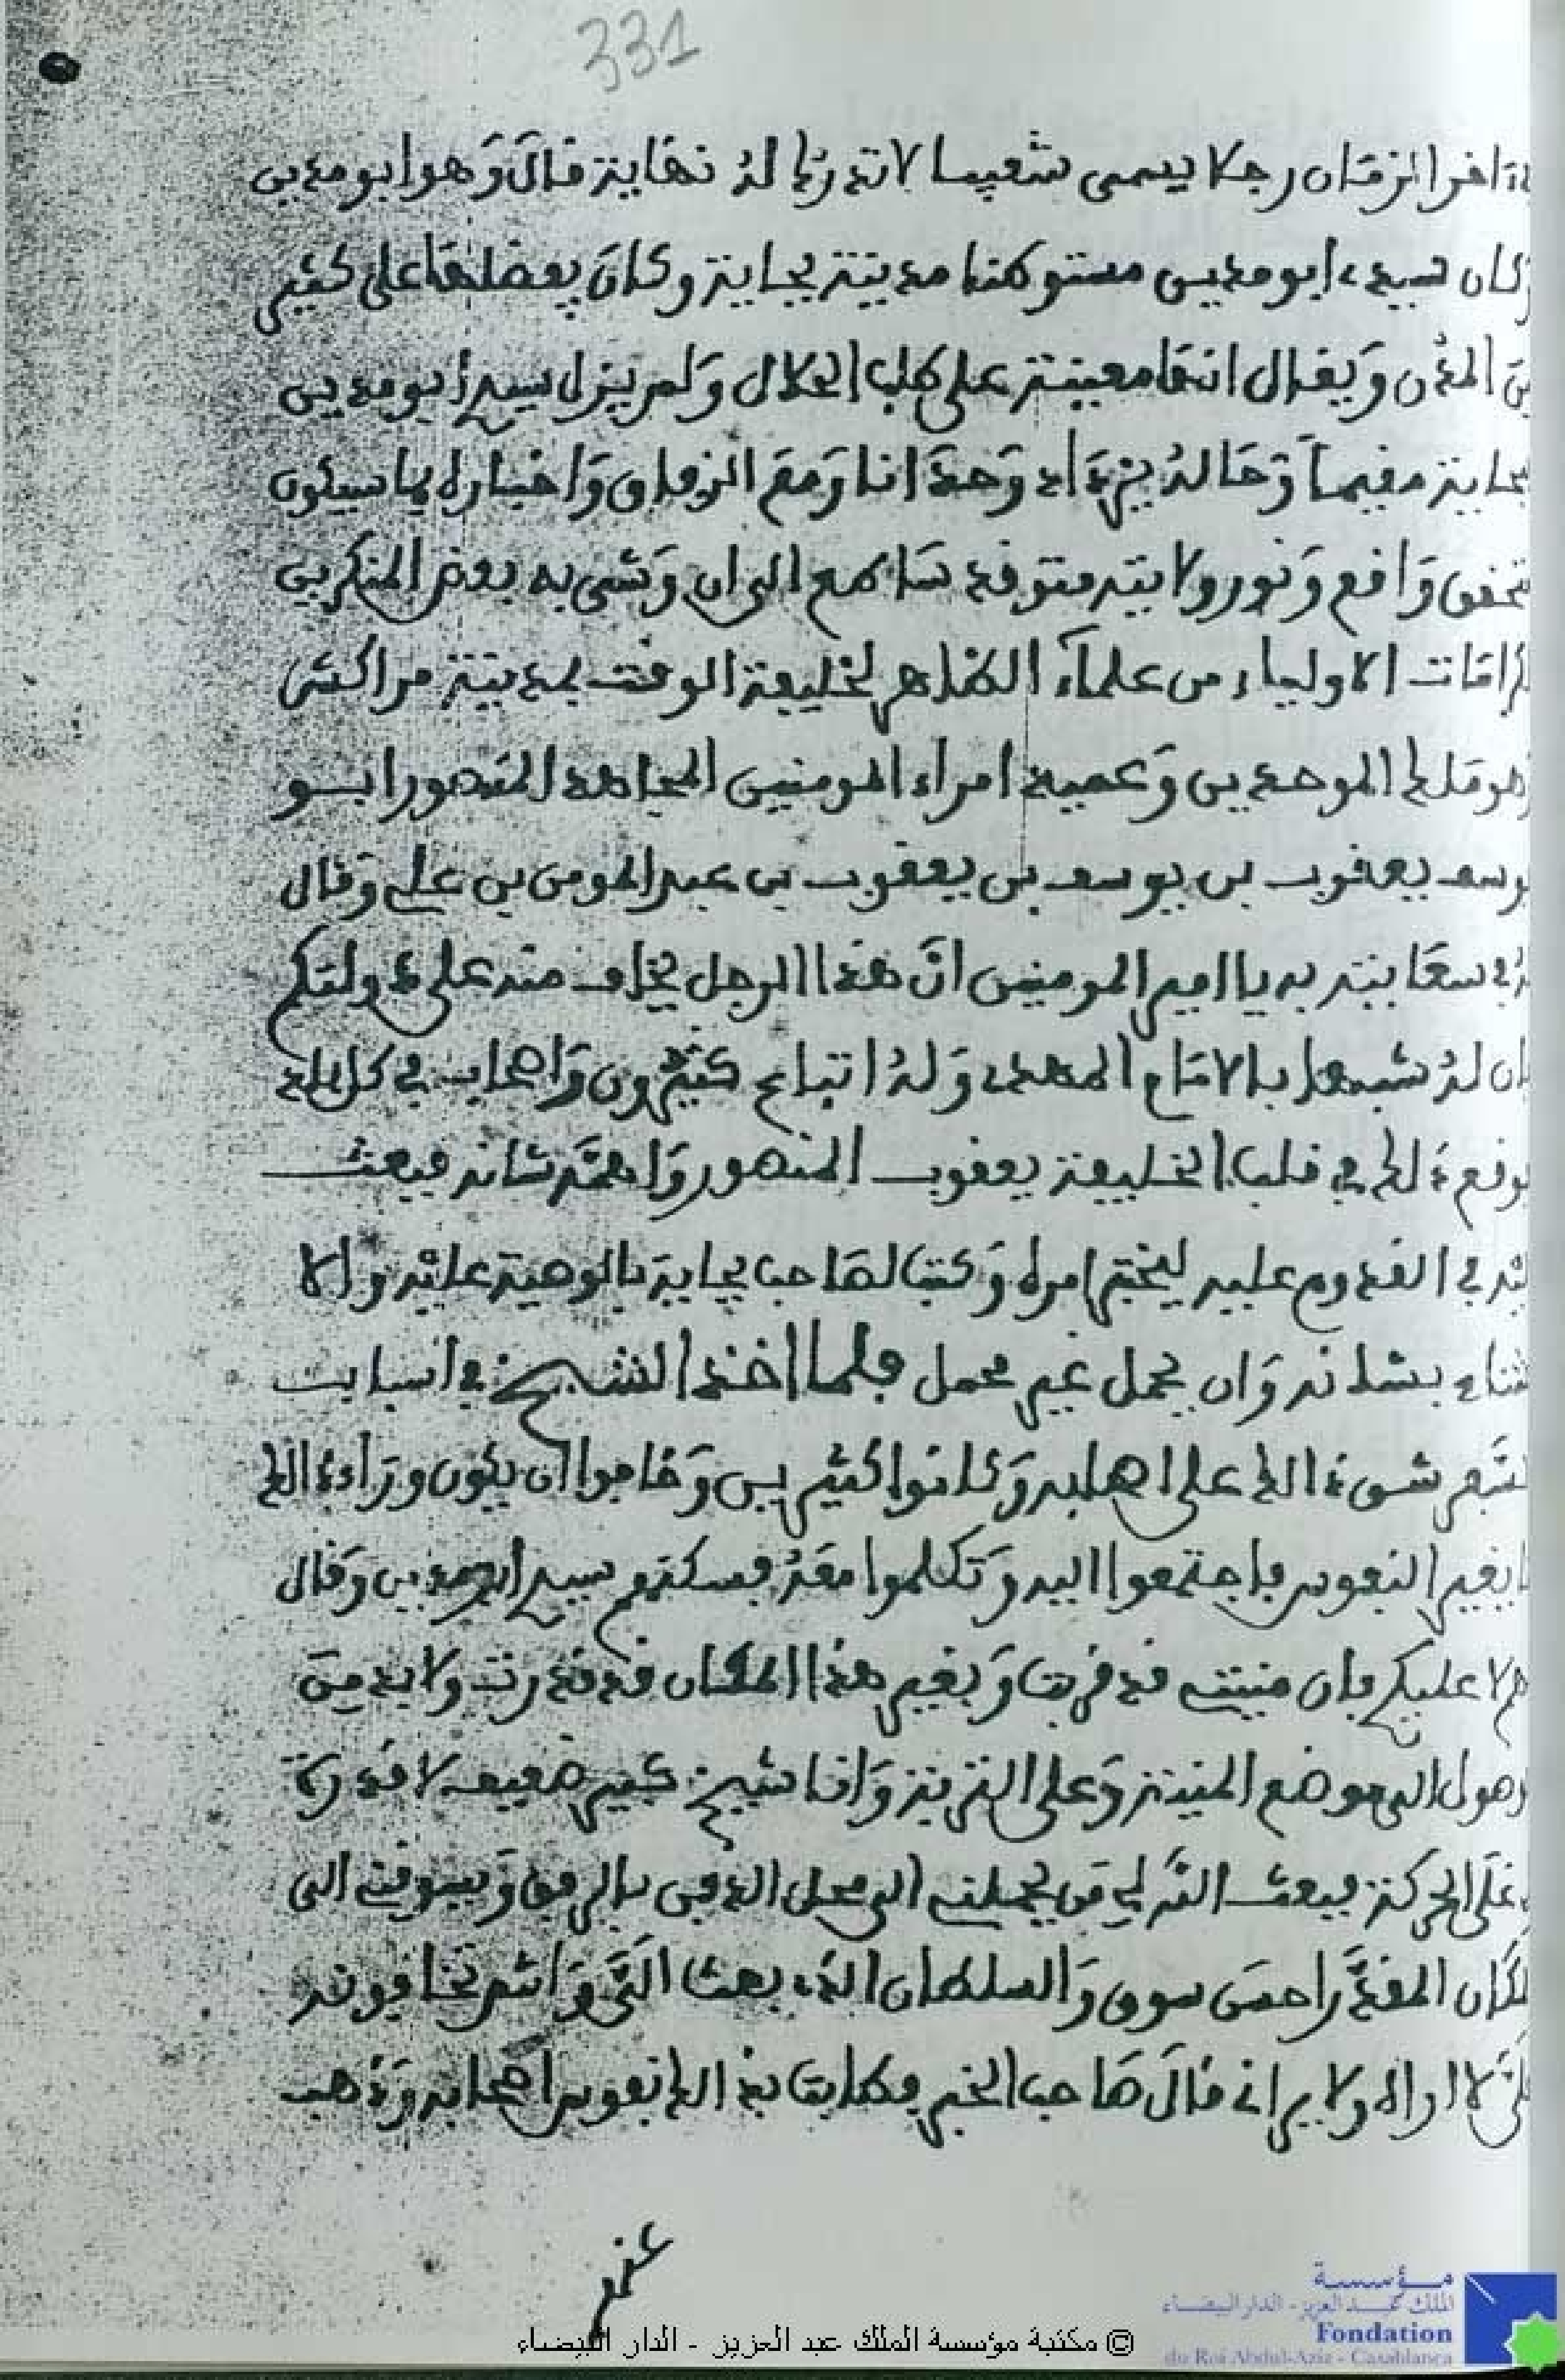 331
اخر الزمان رجلا يسمى شعيبا لا تدرك له نهاية قال وهو ابو مدين
كان سيدي ابو مدين مستوطنا مدينة بجاية وكان يفضلها على كثير
من المدن ويقال انها معينة على طلب الحلال ولم يزل سيدي أبو مدين
بجاية مقيما وحاله يزداد وحدة انا ومع الزمان واخباره بما سيكون
تحقق واقع ونور ولايته متوقد ساطع الى ان وشى به بعض المنكرين
كرامات الاولياء من علماء الظاهر لخليفة الوقت بمدينة مراكش
وهو ملك الموحدين وعميد امراء المومنين المجاهد المنصور ابو
يوسف يعقوب بن يوسف بن يعقوب بن عبد المومن بن علي وقال
في سعايته به يا امير المومنين ان هذا الرجل يخاف منه على دولتكم
فان له شبها بالامام المهدي وله اتباع كثيرون واصحاب في كل بلد
فوقع ذلك في قلب الخليفة يعقوب المنصور واهمه شانه فبعث
اليه في القدوم عليه ليختبر امره وكتب لصاحب بجاية بالوصية عليه والا
عتناء بشانه وان يحمل خير محمل فلما اخذ الشيخ في اسباب
السفر شق ذلك على اصحابه وكانوا كثيرين وخافوا ان يكون وراء ذلك
ما يغير النفوس فاجتمعوا اليه وتكلموا معه فسكتهم سيدي ابو مدين وقال
لهم لا عليكم فان منيتي قد قربت وبغير هذا المكان قد قدرت ولا بد من
وصول الى موضع المنية وعلى النية وانا شيخ كبير ضعيف لا قدرة
لي على الحركة فبعث الله لي من يحملني الى محل الدفن بالرفق ويسوقني الى
مكان المقدر احسن سوق والسلطان الذي بعث الي وانتم تخافونه
علي لا اراه ولا يراني قال صاحب الخبر فطابت بذلك نفوس اصحابه وذهب
عنهم
مؤسسة
الملك عبد العزيز - الدار البيضاء
Fondation
du Roi Abdul-Aziz - Casablanca
© مكتبة مؤسسة الملك عبد العزيز - الدار البيضاء